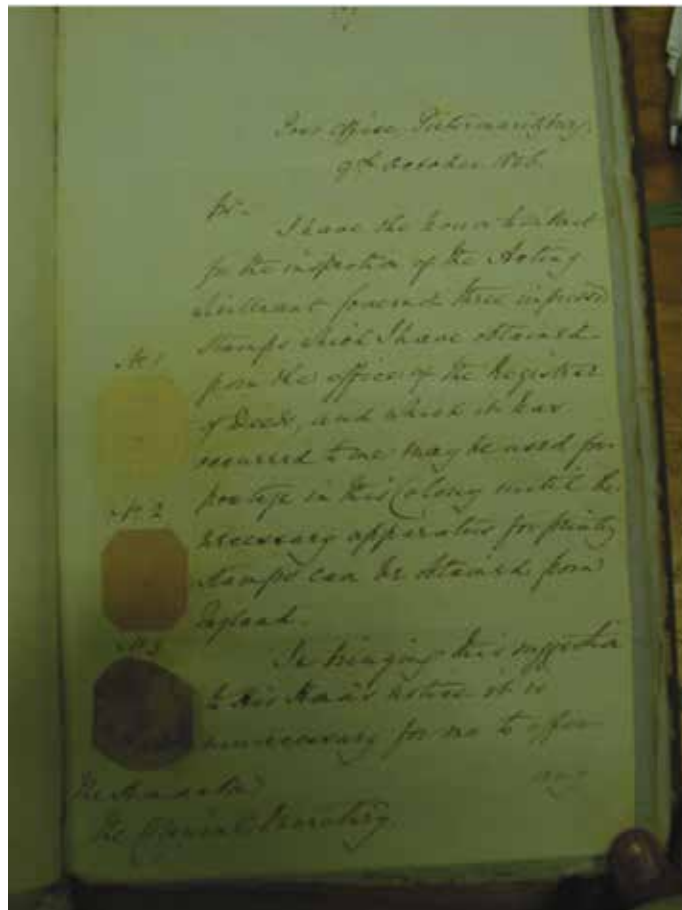 Post Office Pietermaritzburg
9th October 1856.
Sir.
I have the honor to submit
for the inspection of the Acting
Lieutenant Governor three impressed
Stamps which I have obtained
from the office of the Registrar
of Deeds, and which it has
occurred to me may be used for
postage in this Colony until the
necessary apparatus for printing
stamps can be obtained from
England.
In bringing this suggestion
to His notice it is
unnecessary for me to offer
any
No 1
No 2
No 3
The Honorable
The Colonial Secretary.